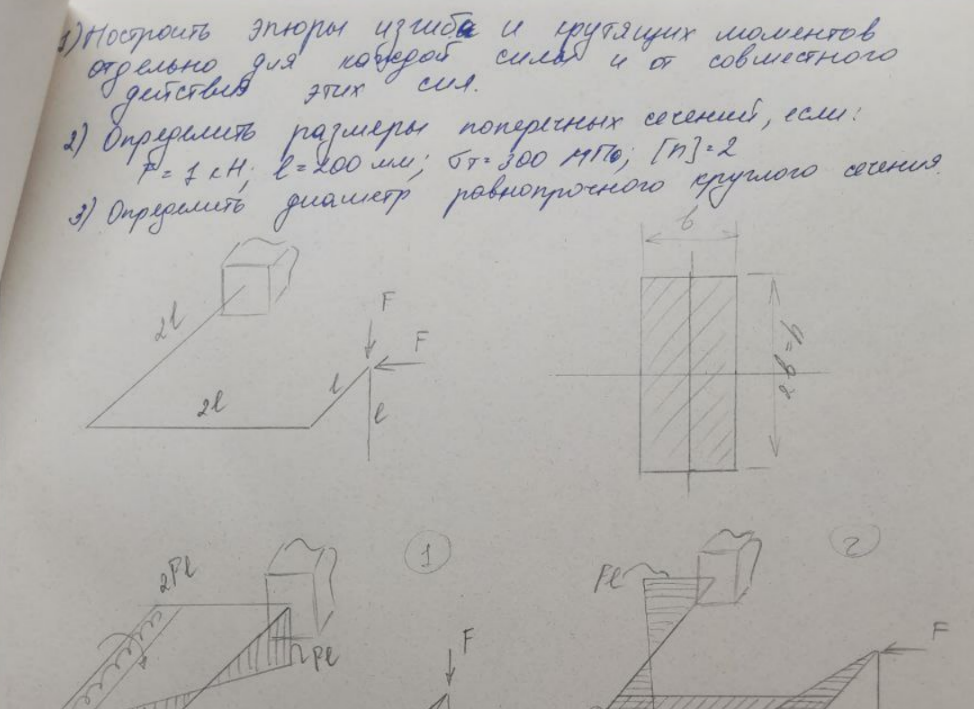 1) Построить эпюры изгиба и крутящих моментов
отдельно для каждой силы и от совместного
действия этих сил.
2) Определить размеры поперечных сечений, если:
F = 1 кН; l = 200 мм; σт = 300 МПа; [n] = 2
3) Определить диаметр равнопрочного круглого сечения.
b
2l
F
F
l
2l
l
1
2
2Pl
Pl
F
F
Pl